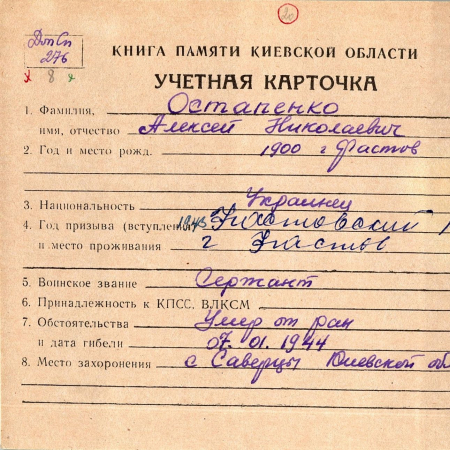 20
Доп Сп
276
8
КНИГА ПАМЯТИ КИЕВСКОЙ ОБЛАСТИ
УЧЕТНАЯ КАРТОЧКА
1. Фамилия, Остапенко
имя, отчество Алексей Николаевич
2. Год и место рожд. 1900 г Фастов
3. Национальность Украинец
4. Год призыва (вступлен 1943
и место проживания г Фастов
5. Воинское звание Сержант
6. Принадлежность к КПСС, ВЛКСМ
7. Обстоятельства Умер от ран
и дата гибели 07.01.1944
8. Место захоронения с Саверцы Киевской об